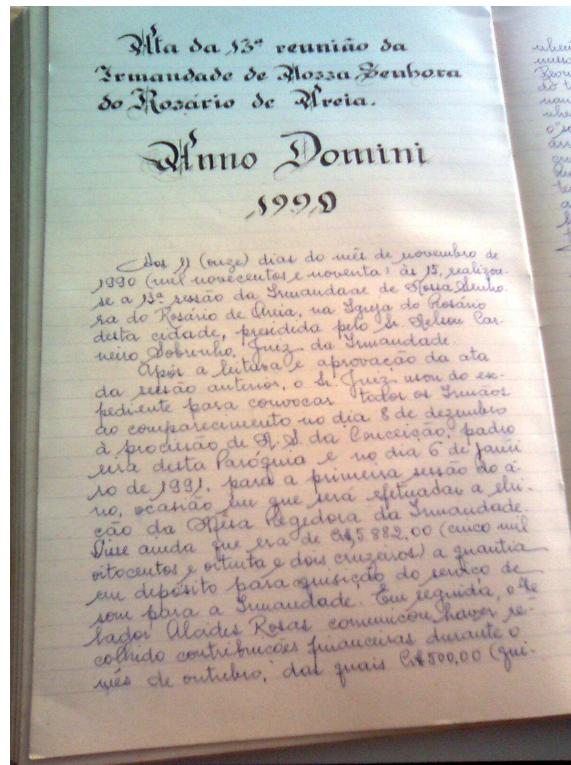 Ata da 13ª reunião da
Irmandade de Nossa Senhora
do Rosário de Areia.
Anno Domini
1990
Aos 11 (onze) dias do mês de novembro de
1990 (mil novecentos e noventa) às 15, realizou-
se a 13ª sessão da Irmandade de Nossa Senho-
ra do Rosário de Areia, na Igreja do Rosário
desta cidade, presidida pelo Sr. Nelson Car-
neiro Sobrinho, Juiz da Irmandade.
Após a leitura e aprovação da ata
da sessão anterior, o Sr. Juiz usou do ex-
pediente para convocar todos os Irmãos
ao comparecimento no dia 8 de dezembro
à procissão de N. S. da Conceição, padro
eira desta Paróquia e no dia 6 de janei
ro de 1991, para a primeira sessão do a-
no, ocasião em que será efetuada a elei-
ção da Mesa Regedora da Irmandade.
Disse ainda que era de Cr$5.882,00 (cinco mil
oitocentos e oitenta e dois cruzeiros) a quantia
em depósito para quisição do serviço de
som para a Irmandade. Em seguida, o Ze
lador Alcides Rosas comunicou haver re-
colhido contribuições financeiras durante o
mês de outubro, das quais Cr$500,00 (qui-